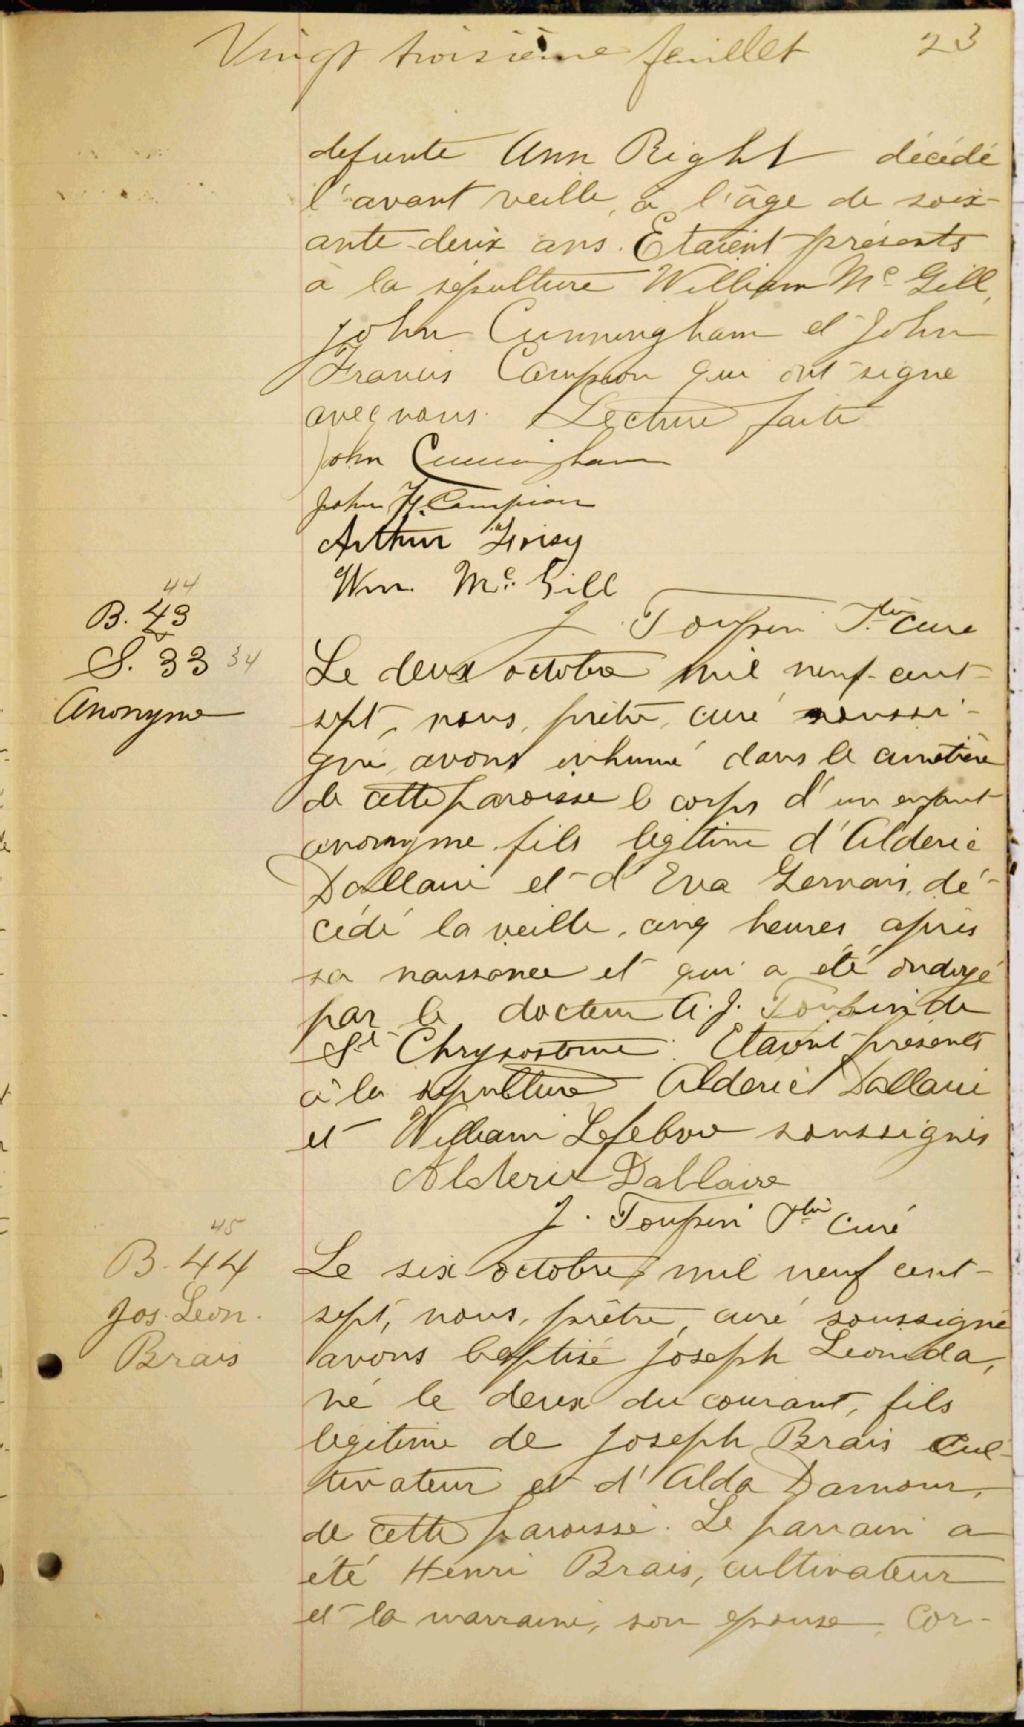 Vingt troisième feuillet 23
defunte Ann Right décédé
l'avant veille, à l'âge de soix-
ante-deux ans. Etaient présents
à la sépulture William Mc Gill,
John Cunningham et John
Francis Campion qui ont signé
avec nous. Lecture faite
John Cunningham
John F. Campion
Arthur Froisy
Wm. Mc. Gill
J. Toupin Ptre curé
44
B. 43
S. 33 34
Anonyme
Le deux octobre mil neuf-cent-
sept, nous, prêtre, curé soussi-
gné, avons inhumé dans le cimetière
de cette paroisse le corps d'un enfant
anonyme fils légitime d'Alderic
Dallaire et d'Eva Gervais, dé-
cédé la veille, cinq heures après
sa naissance et qui a été ondoyé
par le docteur A. J. Toupin de
St Chrysostome. Etaient présents
à la sépulture Alderic Dallaire
et William Lefebvre soussignés
Alderic Dallaire
J. Toupin Ptre Curé
45
B. 44
Jos. Léon.
Brais
Le six octobre mil neuf cent-
sept, nous, prêtre, curé soussigné
avons baptisé Joseph Leonida,
né le deux du courant, fils
légitime de Joseph Brais cul-
tivateur et d'Alda Damour,
de cette paroisse. Le parrain a
été Henri Brais, cultivateur
et la marraine, son épouse, Cor-